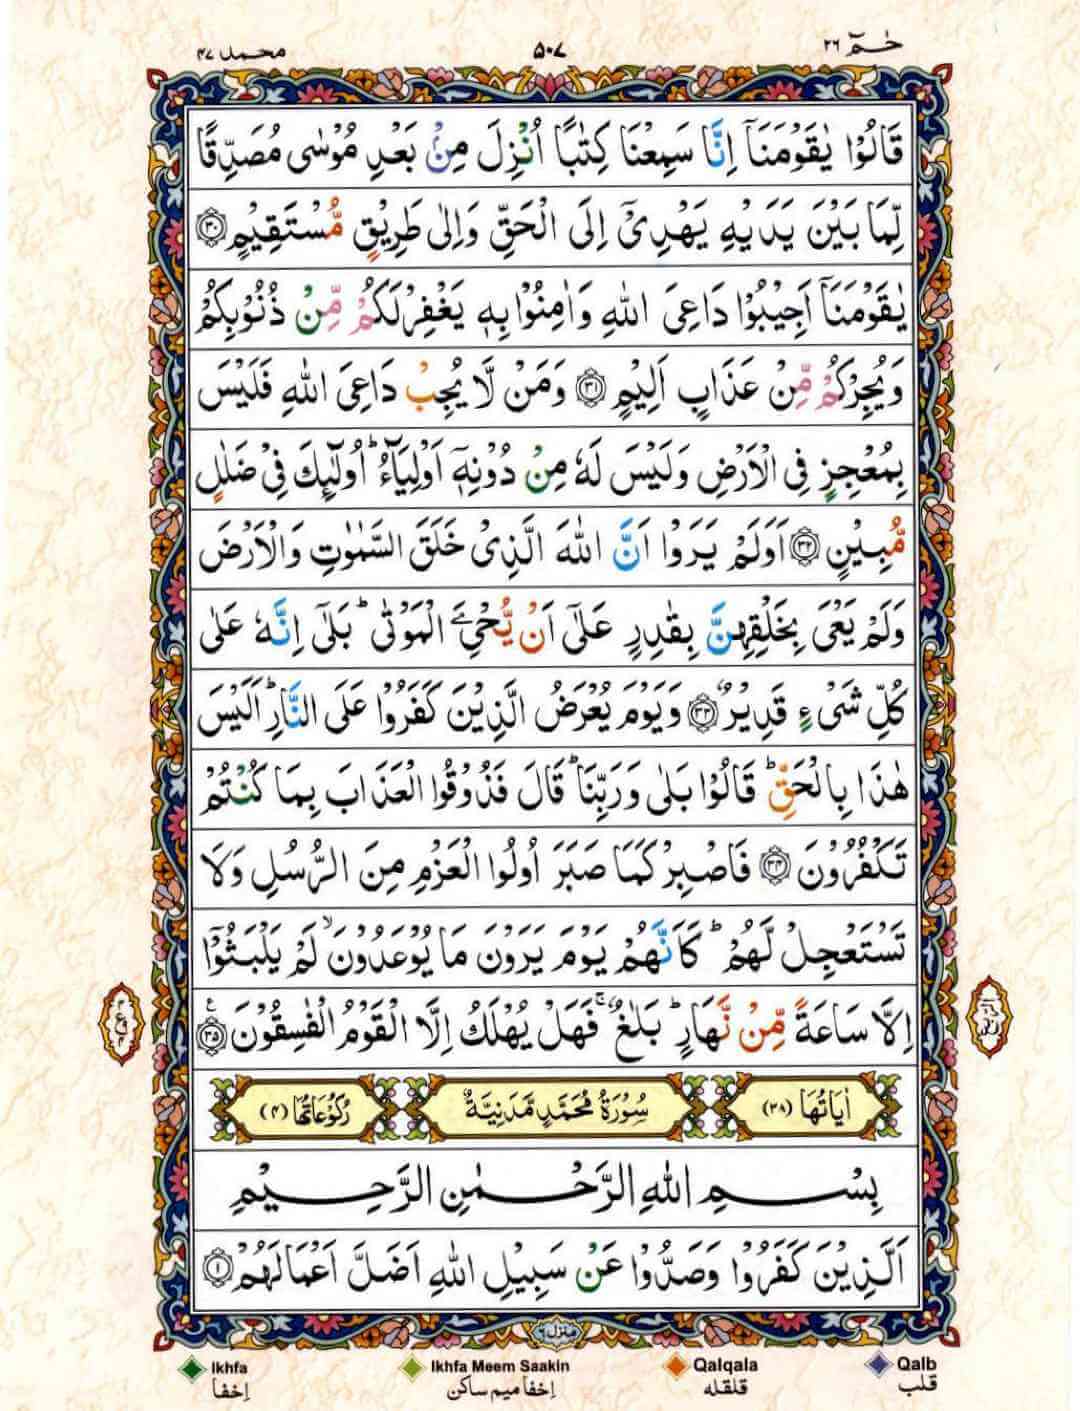 حٰمٓ ٢٦
٥٠٧
محمد ٤٧
قَالُوْا یٰقَوْمَنَاۤ اِنَّا سَمِعْنَا كِتٰبًا اُنْزِلَ مِنْۢ بَعْدِ مُوْسٰی مُصَدِّقًا
لِّمَا بَیْنَ یَدَیْهِ یَهْدِیْۤ اِلَی الْحَقِّ وَاِلٰی طَرِیْقٍ مُّسْتَقِیْمٍ ﴿٣٠﴾
یٰقَوْمَنَاۤ اَجِیْبُوْا دَاعِیَ اللّٰهِ وَاٰمِنُوْا بِهٖ یَغْفِرْ لَكُمْ مِّنْ ذُنُوْبِكُمْ
وَیُجِرْكُمْ مِّنْ عَذَابٍ اَلِیْمٍ ﴿٣١﴾ وَمَنْ لَّا یُجِبْ دَاعِیَ اللّٰهِ فَلَیْسَ
بِمُعْجِزٍ فِی الْاَرْضِ وَلَیْسَ لَهٗ مِنْ دُوْنِهٖۤ اَوْلِیَآءُ ؕ اُولٰٓئِكَ فِیْ ضَلٰلٍ
مُّبِیْنٍ ﴿٣٢﴾ اَوَلَمْ یَرَوْا اَنَّ اللّٰهَ الَّذِیْ خَلَقَ السَّمٰوٰتِ وَالْاَرْضَ
وَلَمْ یَعْیَ بِخَلْقِهِنَّ بِقٰدِرٍ عَلٰۤی اَنْ یُّحْیِۦَ الْمَوْتٰی ؕ بَلٰۤی اِنَّهٗ عَلٰی
كُلِّ شَیْءٍ قَدِیْرٌ ﴿٣٣﴾ وَیَوْمَ یُعْرَضُ الَّذِیْنَ كَفَرُوْا عَلَی النَّارِ ؕ اَلَیْسَ
هٰذَا بِالْحَقِّ ؕ قَالُوْا بَلٰی وَرَبِّنَا ؕ قَالَ فَذُوْقُوا الْعَذَابَ بِمَا كُنْتُمْ
تَكْفُرُوْنَ ﴿٣٤﴾ فَاصْبِرْ كَمَا صَبَرَ اُولُوا الْعَزْمِ مِنَ الرُّسُلِ وَلَا
تَسْتَعْجِلْ لَّهُمْ ؕ كَاَنَّهُمْ یَوْمَ یَرَوْنَ مَا یُوْعَدُوْنَ ۙ لَمْ یَلْبَثُوْۤا
اِلَّا سَاعَةً مِّنْ نَّهَارٍ ؕ بَلٰغٌ ۚ فَهَلْ یُهْلَكُ اِلَّا الْقَوْمُ الْفٰسِقُوْنَ ﴿٣٥﴾ ع
اٰیَاتُهَا (٣٨)
سُوْرَةُ مُحَمَّدٍ مَّدَنِیَّةٌ
رُكُوْعَاتُهَا (٤)
بِسْمِ اللّٰهِ الرَّحْمٰنِ الرَّحِیْمِ
اَلَّذِیْنَ كَفَرُوْا وَصَدُّوْا عَنْ سَبِیْلِ اللّٰهِ اَضَلَّ اَعْمَالَهُمْ ﴿١﴾
منزل ٦
Ikhfa
Ikhfa Meem Saakin
Qalqala
Qalb
اِخفا
اِخفا میم ساکن
قلقله
قلب